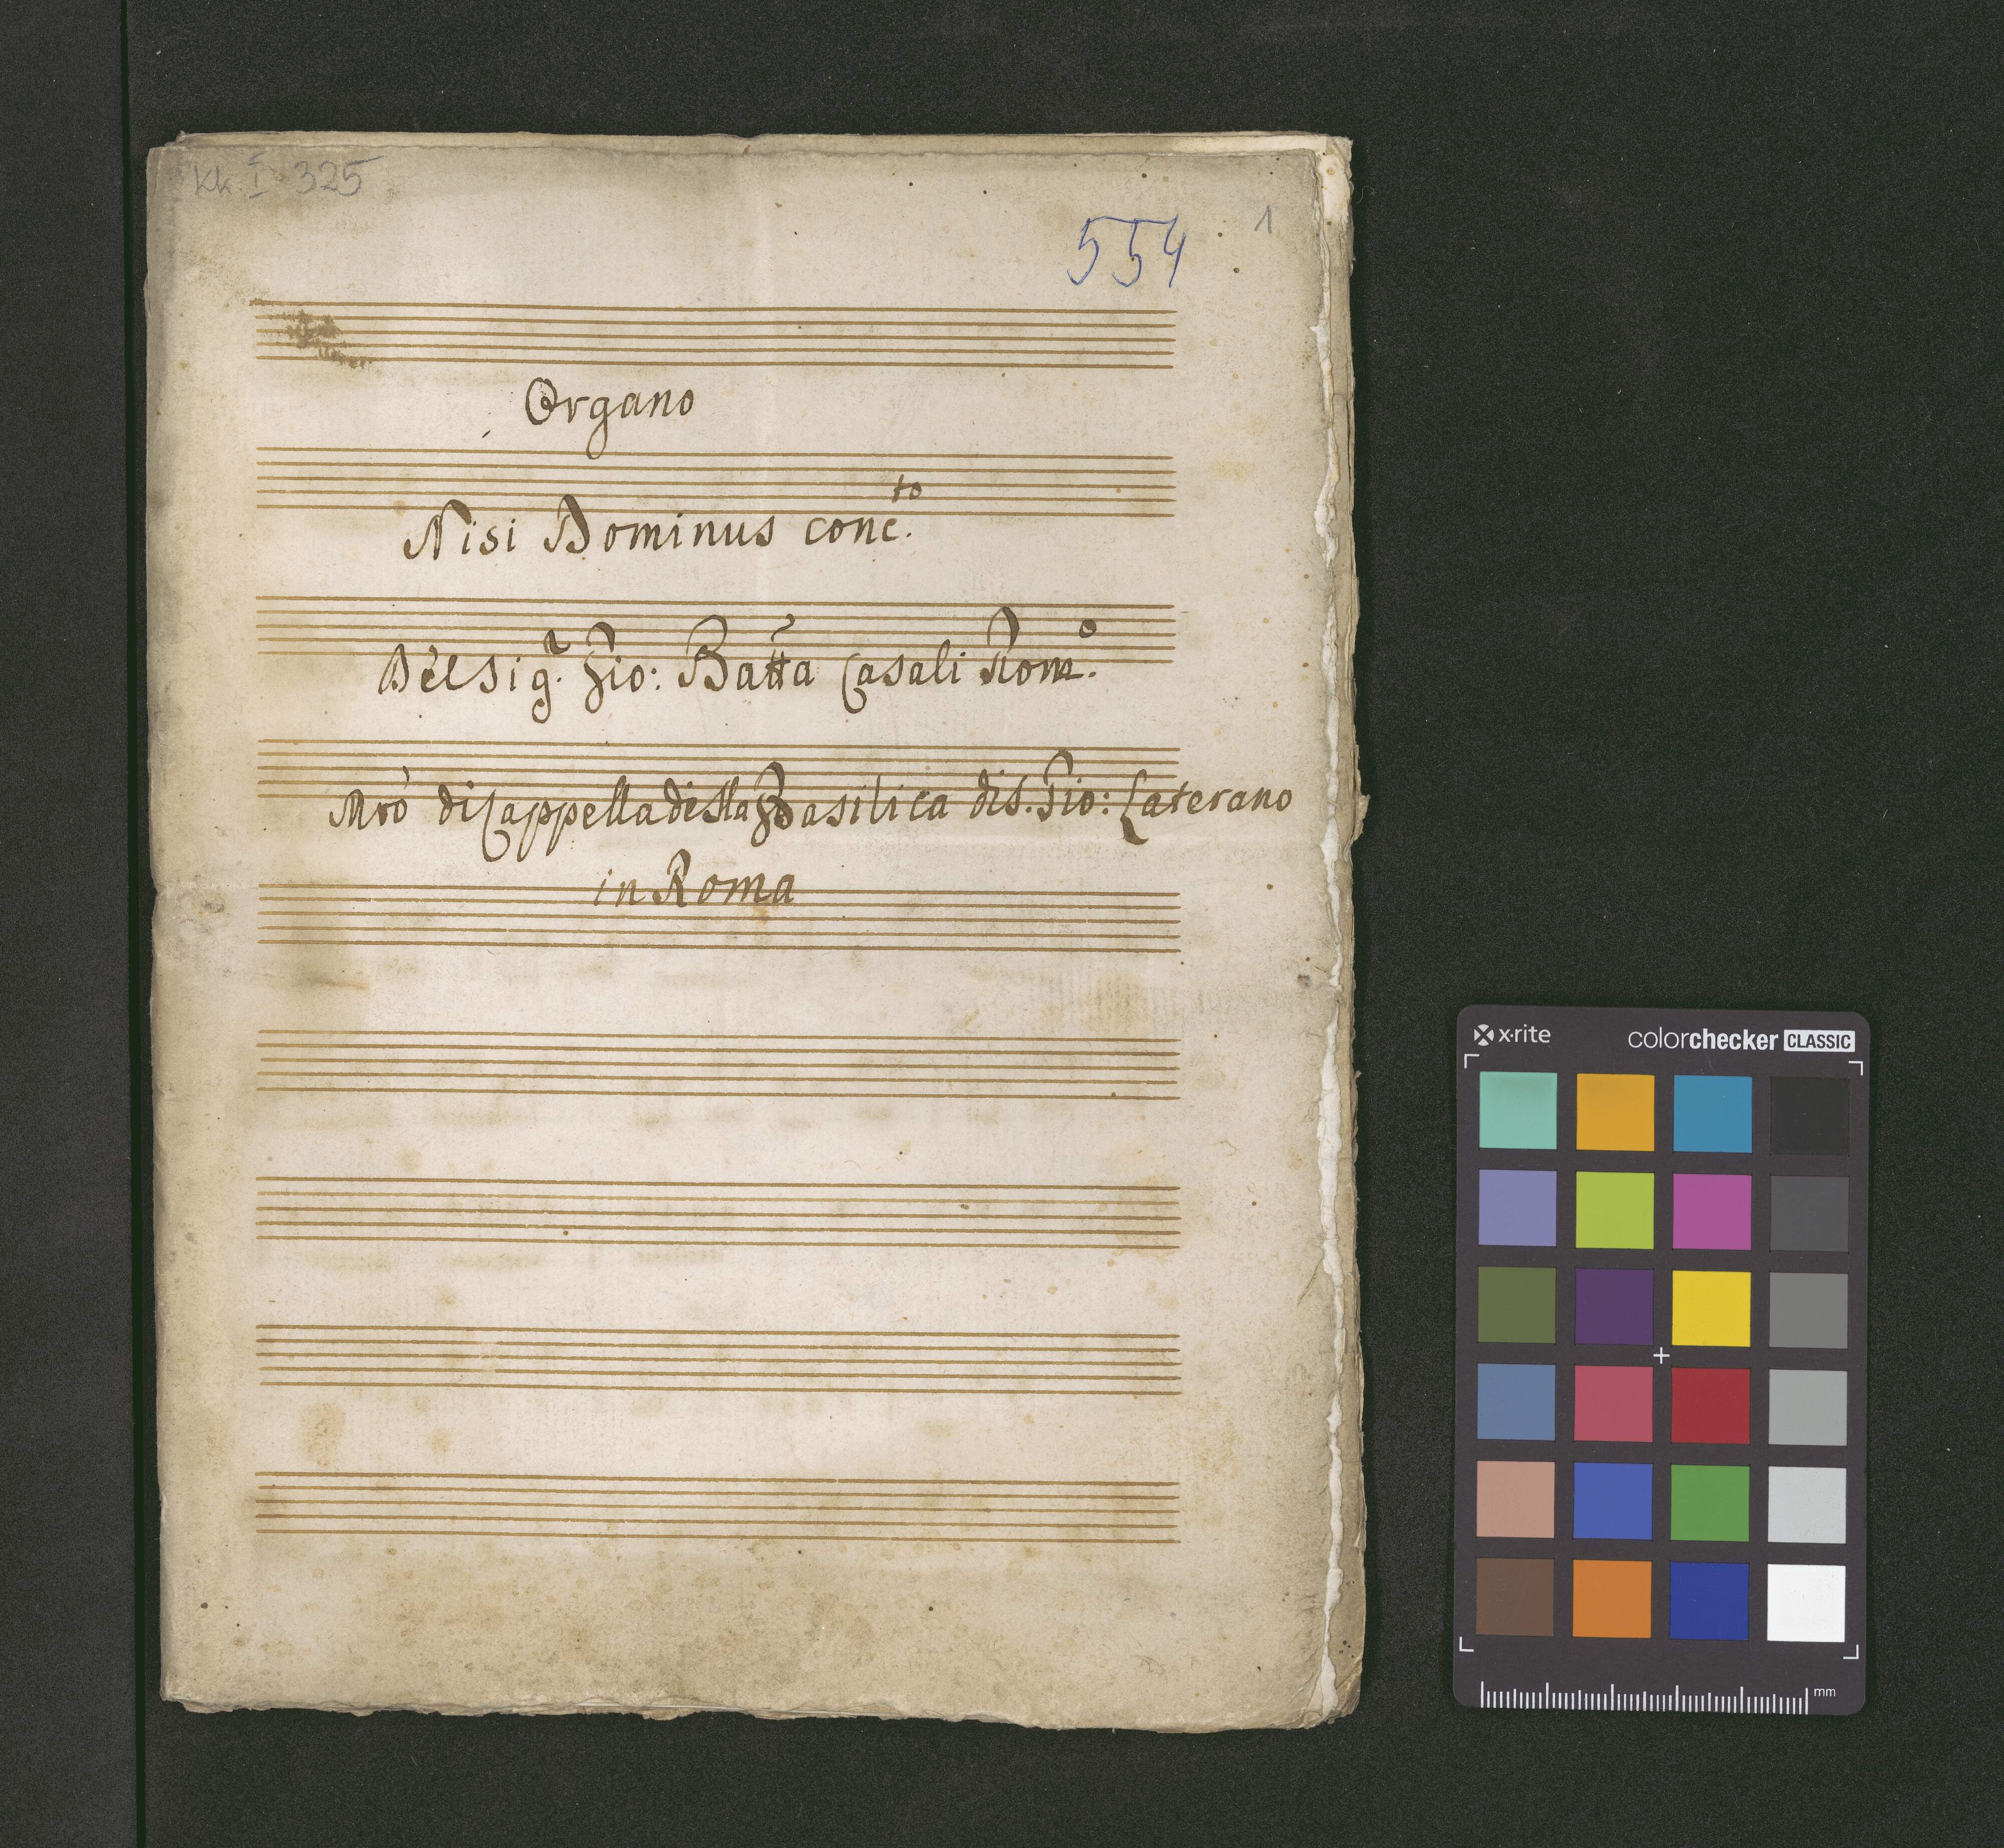 kk I 325
554
1
Organo
Nisi Dominus conc.to
Del Sig.r Gio: Batta Casali Rom.o
Mrò di Cappella della Basilica di S. Gio: Laterano
in Roma
x·rite colorchecker CLASSIC
mm